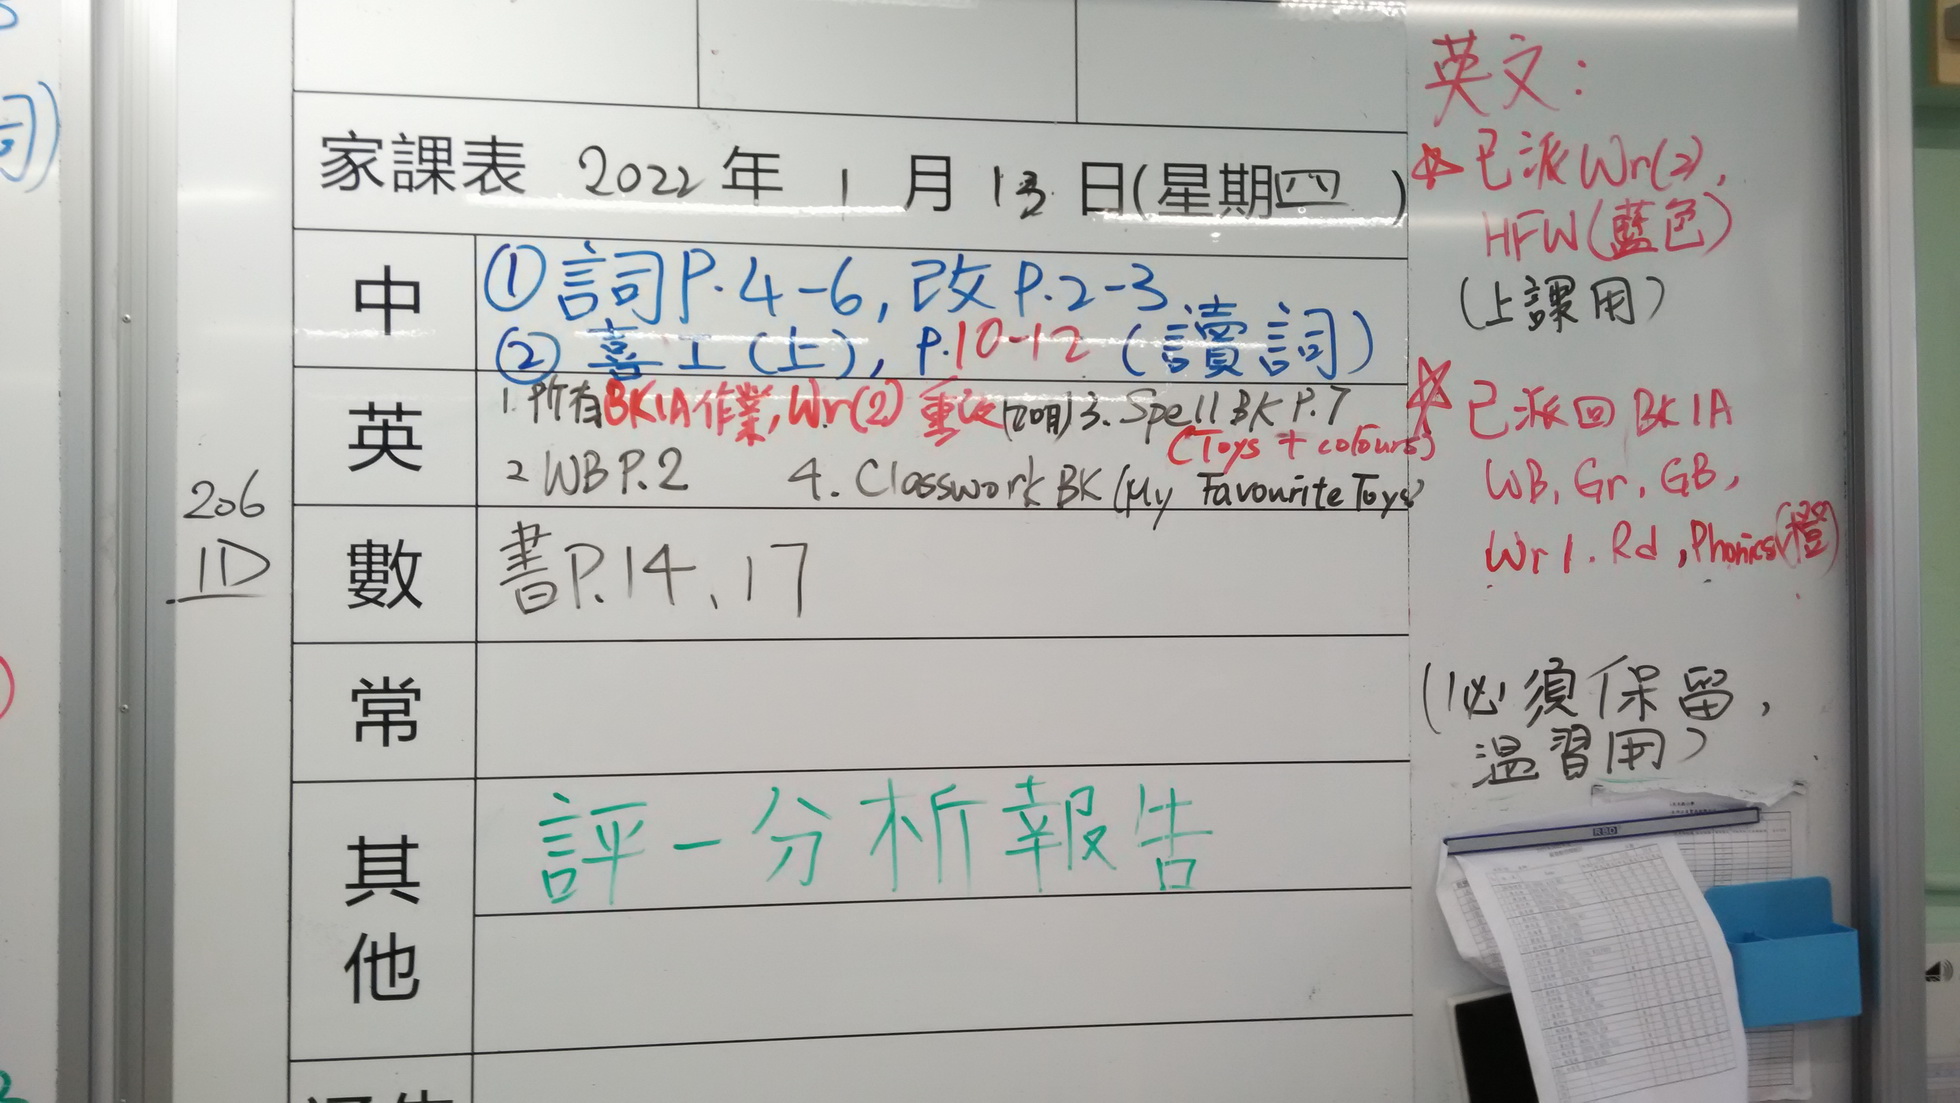 家課表 2022 年 1 月 13 日(星期四)
中
① 詞P.4-6, 改P.2-3
② 喜工(上), P.10-12 (讀詞)
英
1. 所有BK1A作業, Wr(2) 重改 3. Spell BK P.7
(Toys + colours)
2 WB P.2 4. Classwork BK (My Favourite Toys
數
書P.14、17
常
其他
評一分析報告
206
1D
英文:
☆ 已派 Wr(2),
HFW(藍色)
(上課用)
☆ 已派回 BK 1A
WB, Gr, GB,
Wr 1. Rd, Phonics(橙)
(必須保留,
溫習用)